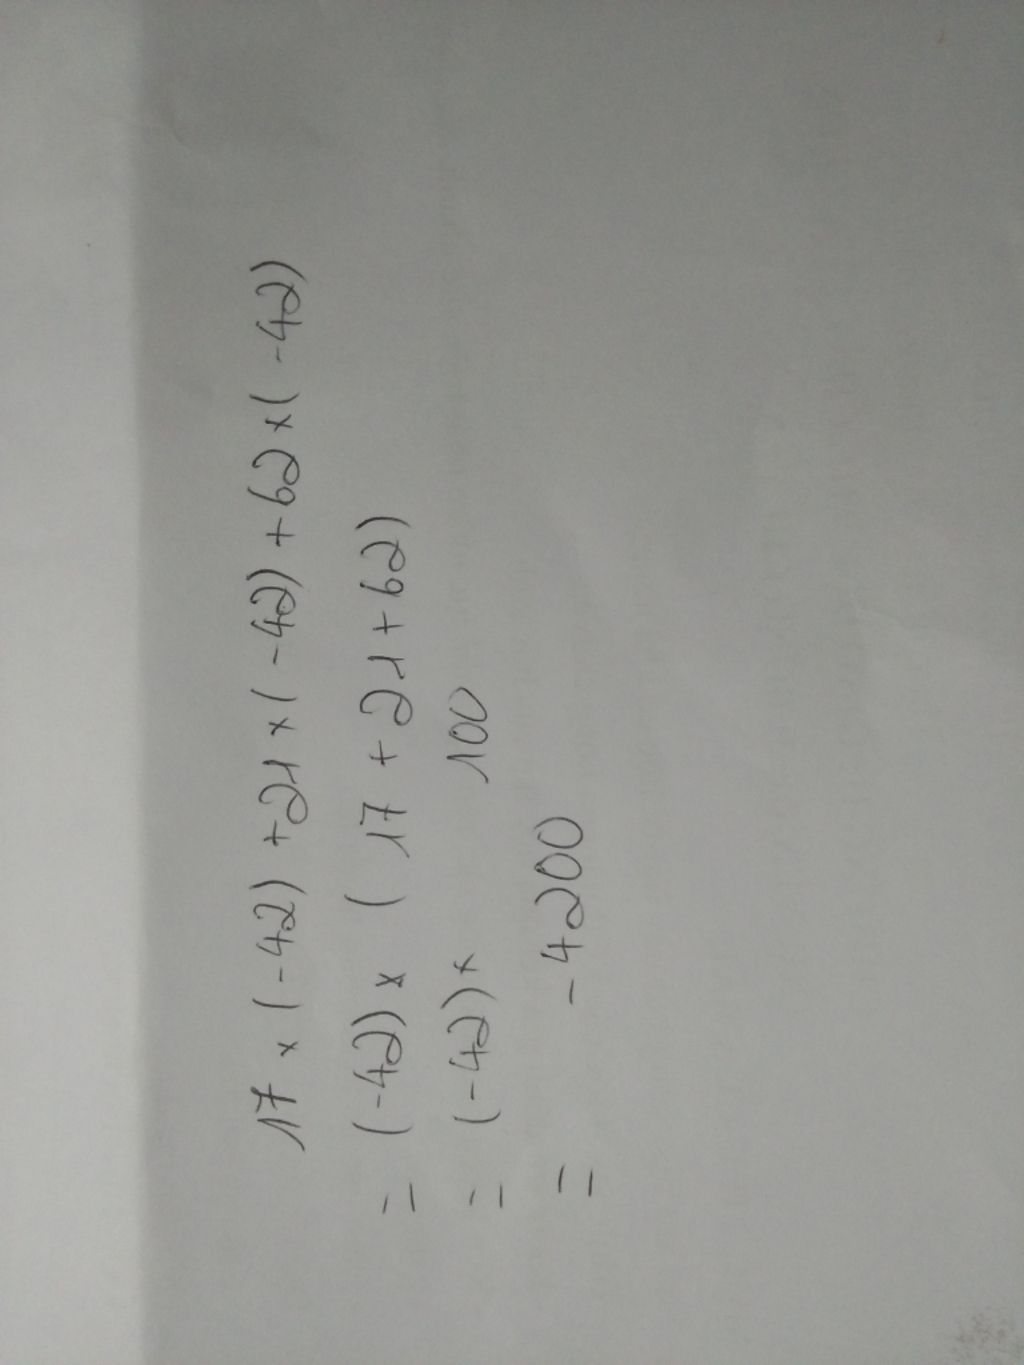 17 × (-42) + 21 × (-42) + 62 × (-42)
= (-42) × (17 + 21 + 62)
= (-42) × 100
= -4200